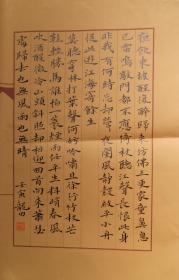 夜飲東坡醒復醉歸來仿佛三更家童鼻息
已雷鳴敲門都不應倚杖聽江聲長恨此身
非我有何時忘却營營夜闌風靜縠紋平小舟
從此逝江海寄餘生
莫聽穿林打葉聲何妨吟嘯且徐行竹杖芒
鞋輕勝馬誰怕一蓑煙雨任平生料峭春風
吹酒醒微冷山頭斜照却相迎回首向來蕭瑟
處歸去也無風雨也無晴 壬寅